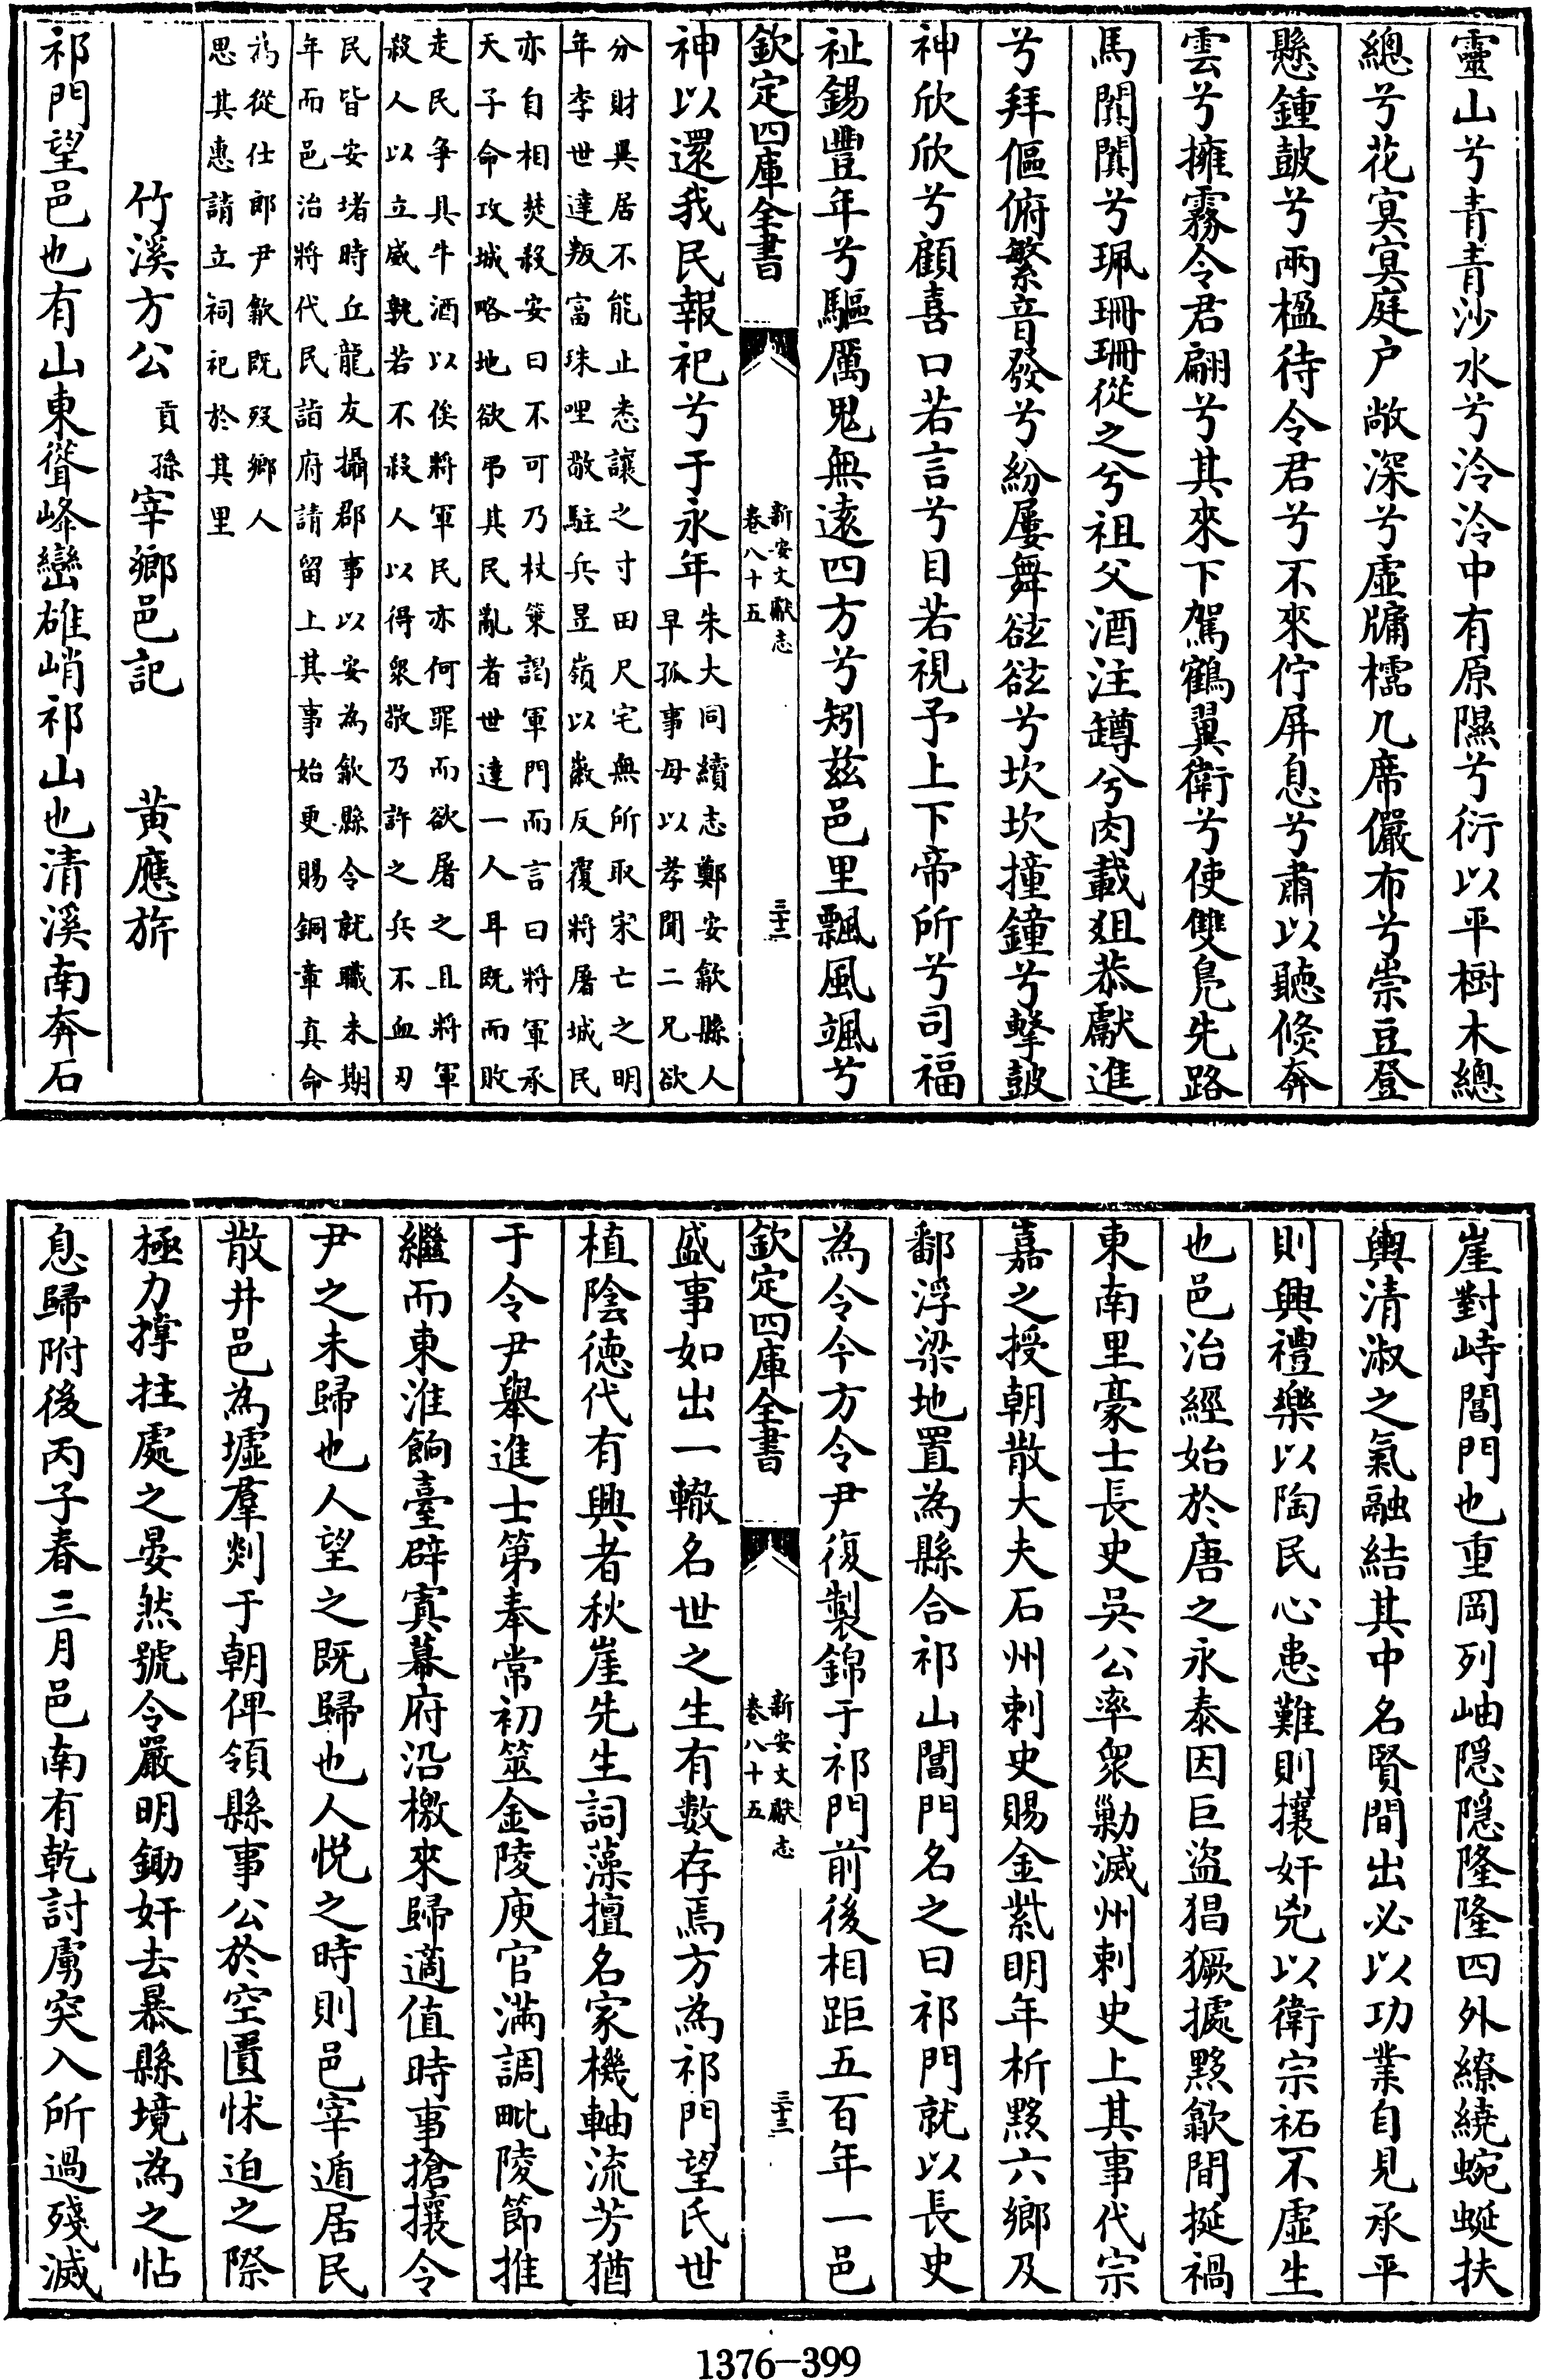 靈山兮青青沙水兮泠泠中有原隰兮衍以平樹木總
總兮花冥冥庭户敞深兮虛牗櫺几席儼布兮崇豆登
懸鍾鼓兮兩楹待令君兮不來佇屏息兮肅以聽倐奔
雲兮擁霧令君翩兮其來下駕鶴翼衛兮使雙鳬先路
馬闐闐兮珮珊珊從之兮祖父酒注罇兮肉載爼恭獻進
兮拜傴俯繁音發兮紛屢舞兹兹兮坎坎撞鐘兮擊鼓
神欣欣兮顧喜口若言兮目若視予上下帝所兮司福
祉錫豐年兮驅厲鬼無逺四方兮矧兹邑里飄風颯兮
欽定四庫全書
新安文獻志
卷八十五
三十二
神以還我民報祀兮于永年
朱大同續志鄭安歙縣人
早孤事母以孝聞二兄欲
分財異居不能止悉讓之寸田尺宅無所取宋亡之明
年李世達叛富珠哩敬駐兵昱嶺以㣲反覆將屠城民
亦自相焚殺安曰不可乃杖䇿謁軍門而言曰將軍承
天子命攻城略地欲弔其民亂者世達一人耳既而敗
走民争具牛酒以俟將軍民亦何罪而欲屠之且將軍
殺人以立威孰若不殺人以得衆敬乃許之兵不血刃
民皆安堵時丘龍友攝郡事以安為歙縣令就職未期
年而邑治將代民詣府請留上其事始更賜銅章真命
為從仕郎尹歙既殁鄉人
思其惠請立祠祀於其里
竹溪方公貢孫宰鄉邑記　黃應旂
祁門望邑也有山東聳峰巒雄峭祁山也清溪南奔石
崖對峙閶門也重岡列岫隠隠隆隆四外繚繞蜿蜒扶
輿清淑之氣融結其中名賢間出必以功業自見承平
則興禮樂以陶民心患難則攘奸兇以衛宗祏不虛生
也邑治經始於唐之永泰因巨盜猖獗據黟歙間挻禍
東南里豪士長史吳公率衆勦滅州刺史上其事代宗
嘉之授朝散大夫石州刺史賜金紫明年析黟六鄉及
鄱浮梁地置為縣合祁山閶門名之曰祁門就以長史
為令今方令尹復製錦于祁門前後相距五百年一邑
欽定四庫全書
新安文獻志
卷八十五
三十三
盛事如出一轍名世之生有数存焉方為祁門望氏世
植陰德代有興者秋崖先生詞藻擅名家機軸流芳猶
于令尹舉進士第奉常初筮金陵庾官滿調毗陵節推
繼而東淮餉臺辟寘幕府沿檄來歸適值時事搶攘令
尹之未歸也人望之既歸也人悦之時則邑宰遁居民
散井邑為墟羣剡于朝俾領縣事公於空匱怵迫之際
極力撑拄處之晏然號令嚴明鋤奸去暴縣境為之帖
息歸附後丙子春三月邑南有乾討虜突入所過殘滅
1376-399